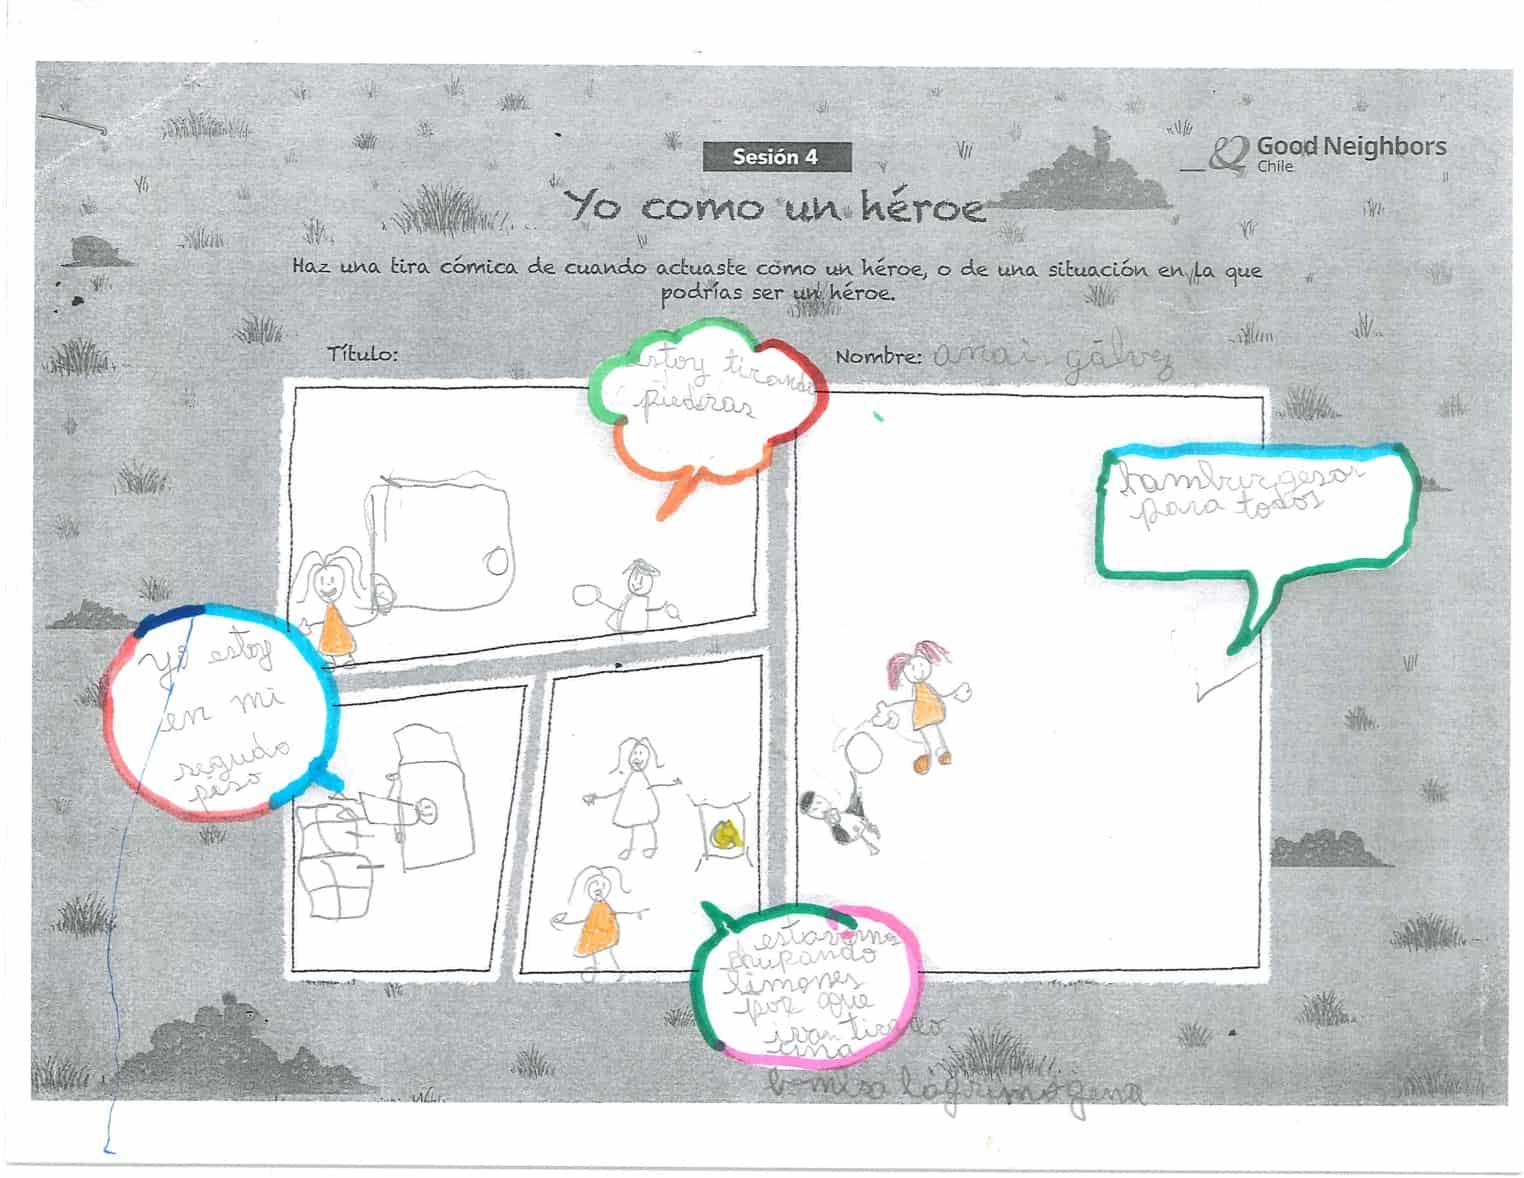 Sesión 4
Good Neighbors
Chile
Yo como un héroe
Haz una tira cómica de cuando actuaste como un héroe, o de una situación en la que
podrías ser un héroe.
Título:
Nombre: anai gálvez
estoy tirando
piedras
hamburgesas
para todos
Yo estoy
en mi
segudo
piso
estavamos
chupando
limones
por que
ivan tirado
una
lágrimógena